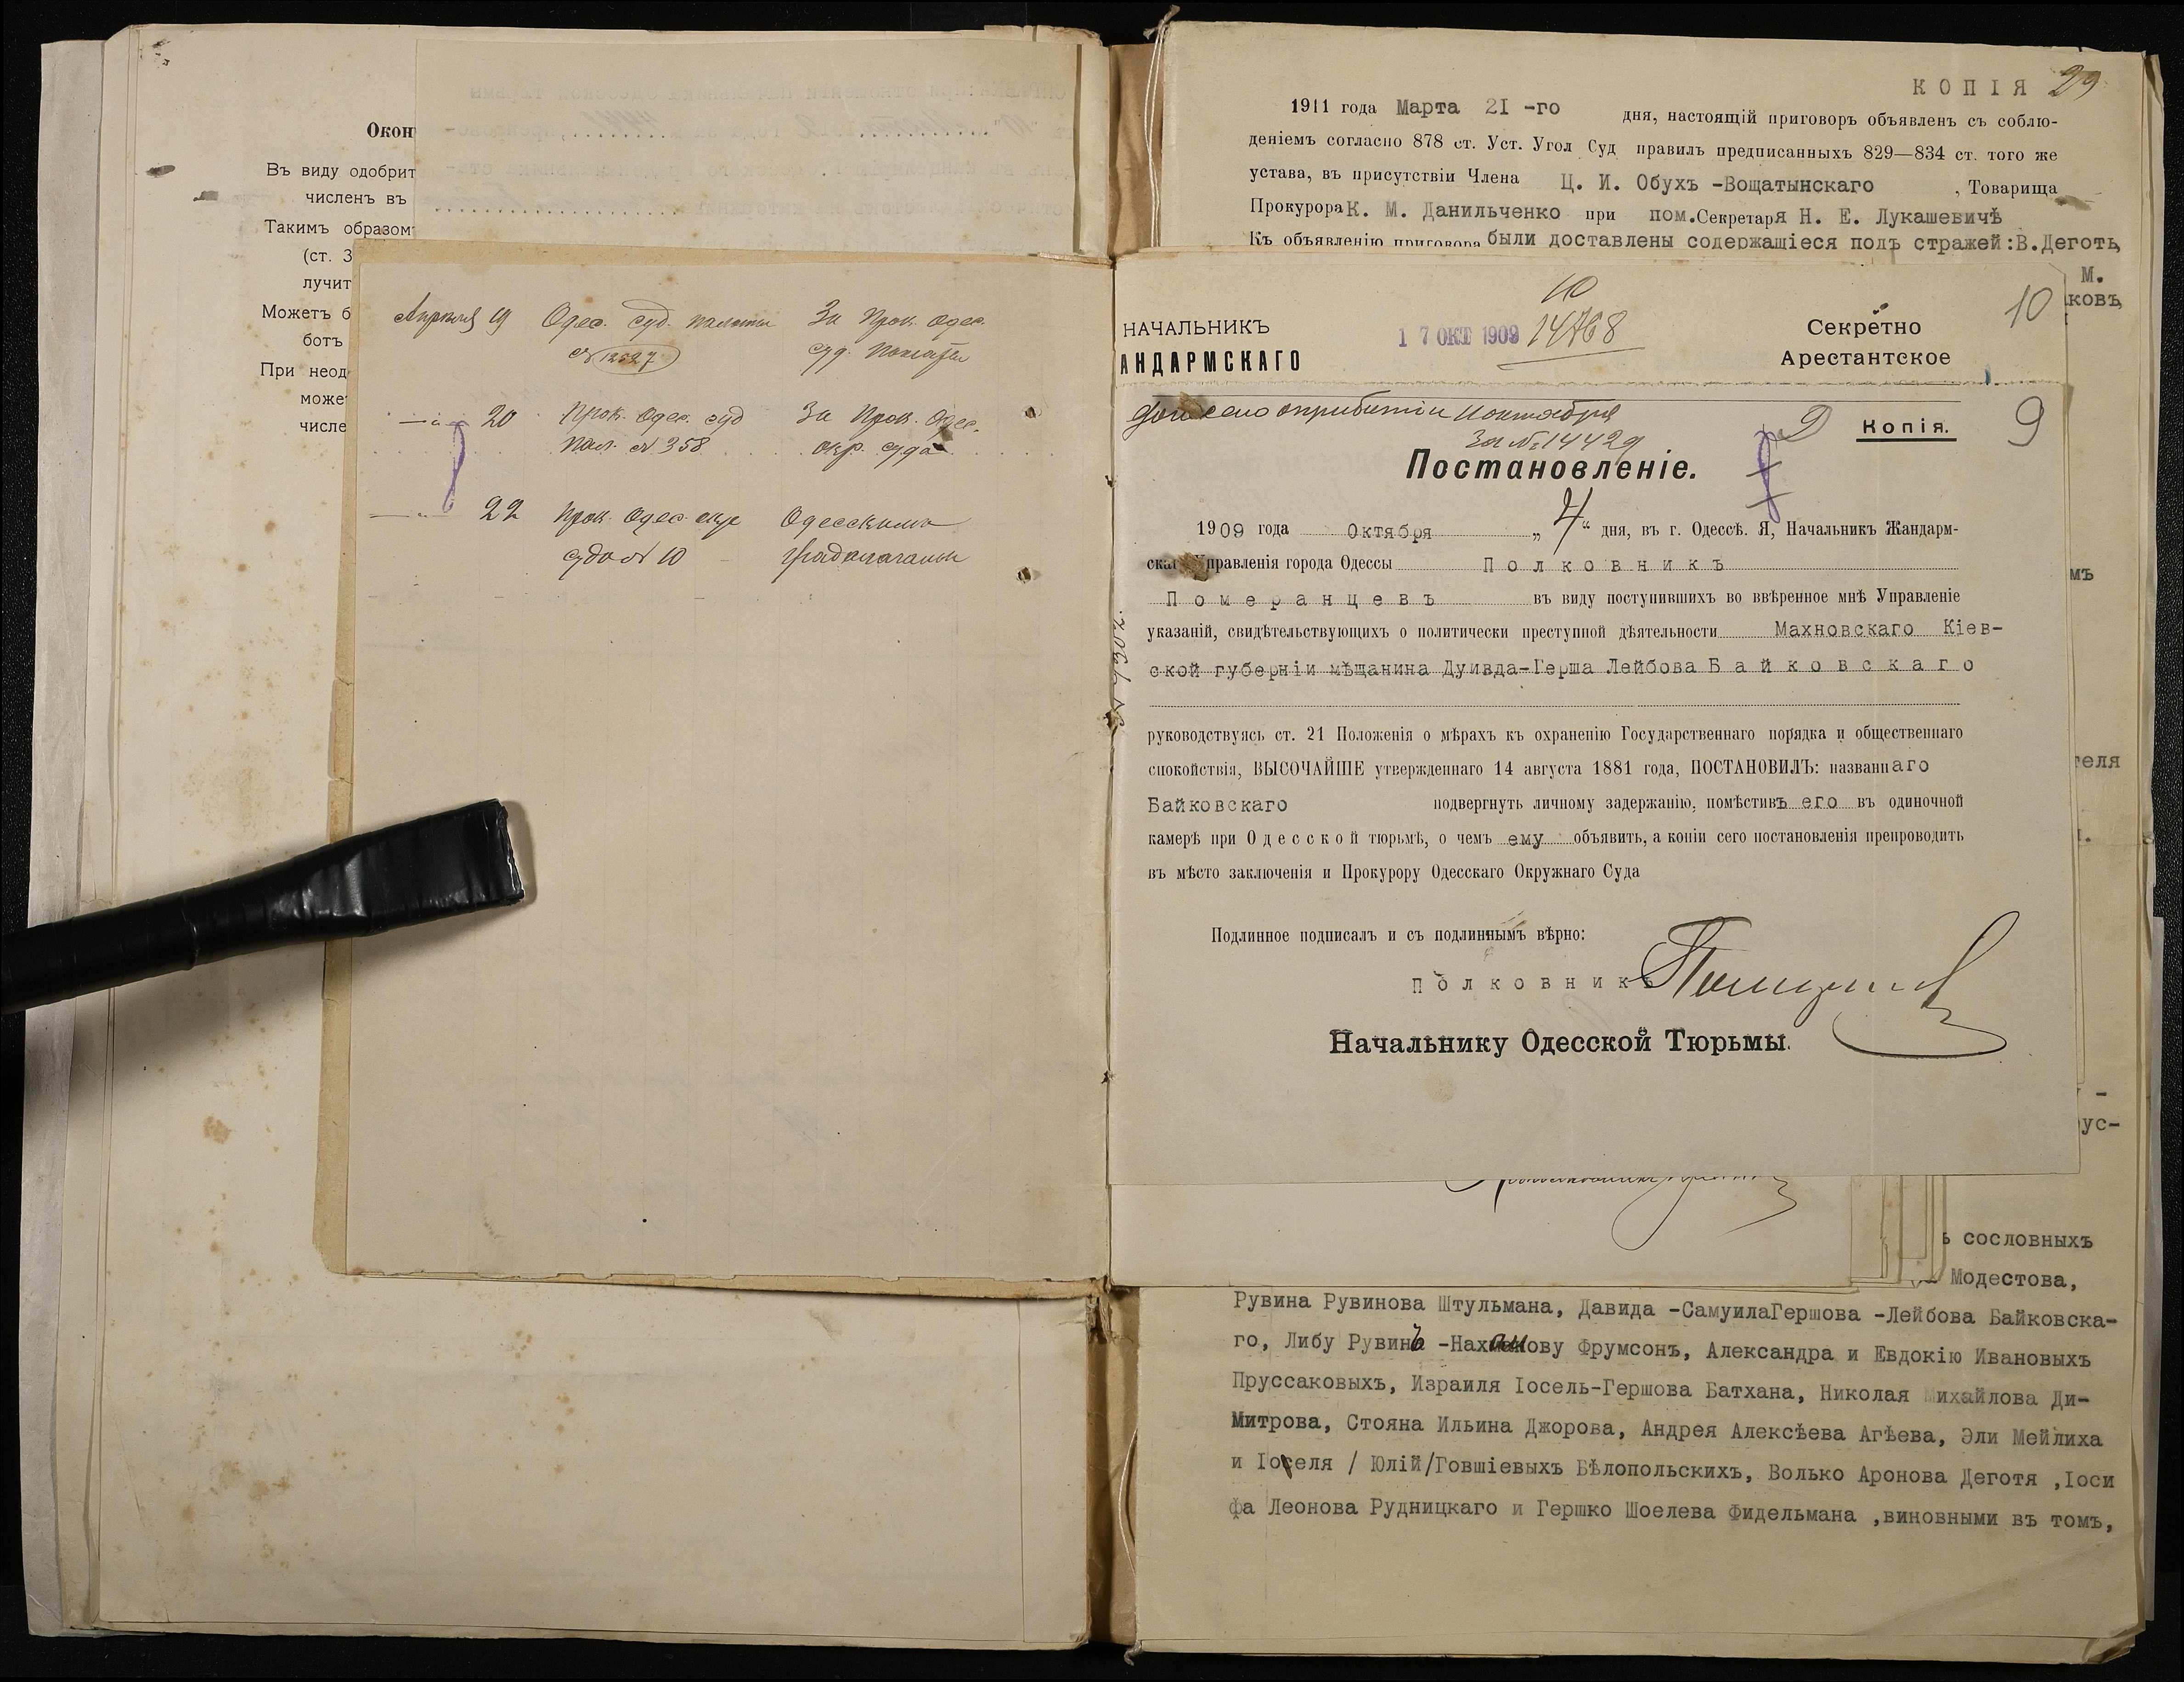 Окон
Въ виду одобрит
численъ въ
Такимъ образом
(ст. 3
лучит
Можетъ б
ботъ
При неод
може
числе
Апрѣля 19 Одес. суд. палаты За Прок. Одес.
№ 12527 суд. Палаты
—"— 20 Прок. Одес. суд За Прок. Одес.
пал. № 358 окр. суда
—"— 22 Прок. Одес. окр Одесскимъ
суда № 10 Градоначальн
КОПІЯ 29
1911 года Марта 21 -го дня, настоящій приговоръ объявленъ съ соблю-
деніемъ согласно 878 ст. Уст. Угол Суд правилъ предписанныхъ 829—834 ст. того же
устава, въ присутствіи Члена Ц. И. Обухъ -Вощатынскаго , Товарища
Прокурора К. М. Данильченко при пом.Секретаря Н. Е. Лукашевичѣ
Къ объявленію приговора были доставлены содержащіеся подъ стражей:В.Деготь,
М.
ковъ,
10
НАЧАЛЬНИКЪ
АНДАРМСКАГО
17 ОКТ 1909 14768
Секретно
Арестантское
10
донесено о прибытіи 11 октября
За № 14429
Копія.
9
Постановленіе.
1909 года Октября „4“ дня, въ г. Одессѣ. Я, Начальникъ Жандарм-
скаго Управленія города Одессы Полковникъ
Померанцевъ въ виду поступившихъ во ввѣренное мнѣ Управленіе
указаній, свидѣтельствующихъ о политически преступной дѣятельности Махновскаго Кіев-
ской губерніи мѣщанина Дуивда-Герша Лейбова Байковскаго
руководствуясь ст. 21 Положенія о мѣрахъ къ охраненію Государственнаго порядка и общественнаго
спокойствія, ВЫСОЧАЙШЕ утвержденнаго 14 августа 1881 года, ПОСТАНОВИЛЪ: названнаго
Байковскаго подвергнуть личному задержанію, помѣстивъ его въ одиночной
камерѣ при Одесской тюрьмѣ, о чемъ ему объявить, а копіи сего постановленія препроводить
въ мѣсто заключенія и Прокурору Одесскаго Окружнаго Суда
Подлинное подписалъ и съ подлиннымъ вѣрно:
Полковникъ
Начальнику Одесской Тюрьмы.
мъ
теля
ус-
ъ сословныхъ
Модестова,
Рувина Рувинова Штульмана, Давида -СамуилаГершова -Лейбова Байковска-
го, Либу Рувинъ -Нахманову Фрумсонъ, Александра и Евдокію Ивановыхъ
Пруссаковыхъ, Израиля Іосель-Гершова Батхана, Николая Михайлова Ди-
Митрова, Стояна Ильина Джорова, Андрея Алексѣева Агѣева, Эли Мейлиха
и Іоселя / Юлій/Говшіевыхъ Бѣлопольскихъ, Волько Аронова Деготя ,Іоси
фа Леонова Рудницкаго и Гершко Шоелева Фидельмана ,виновными въ томъ,